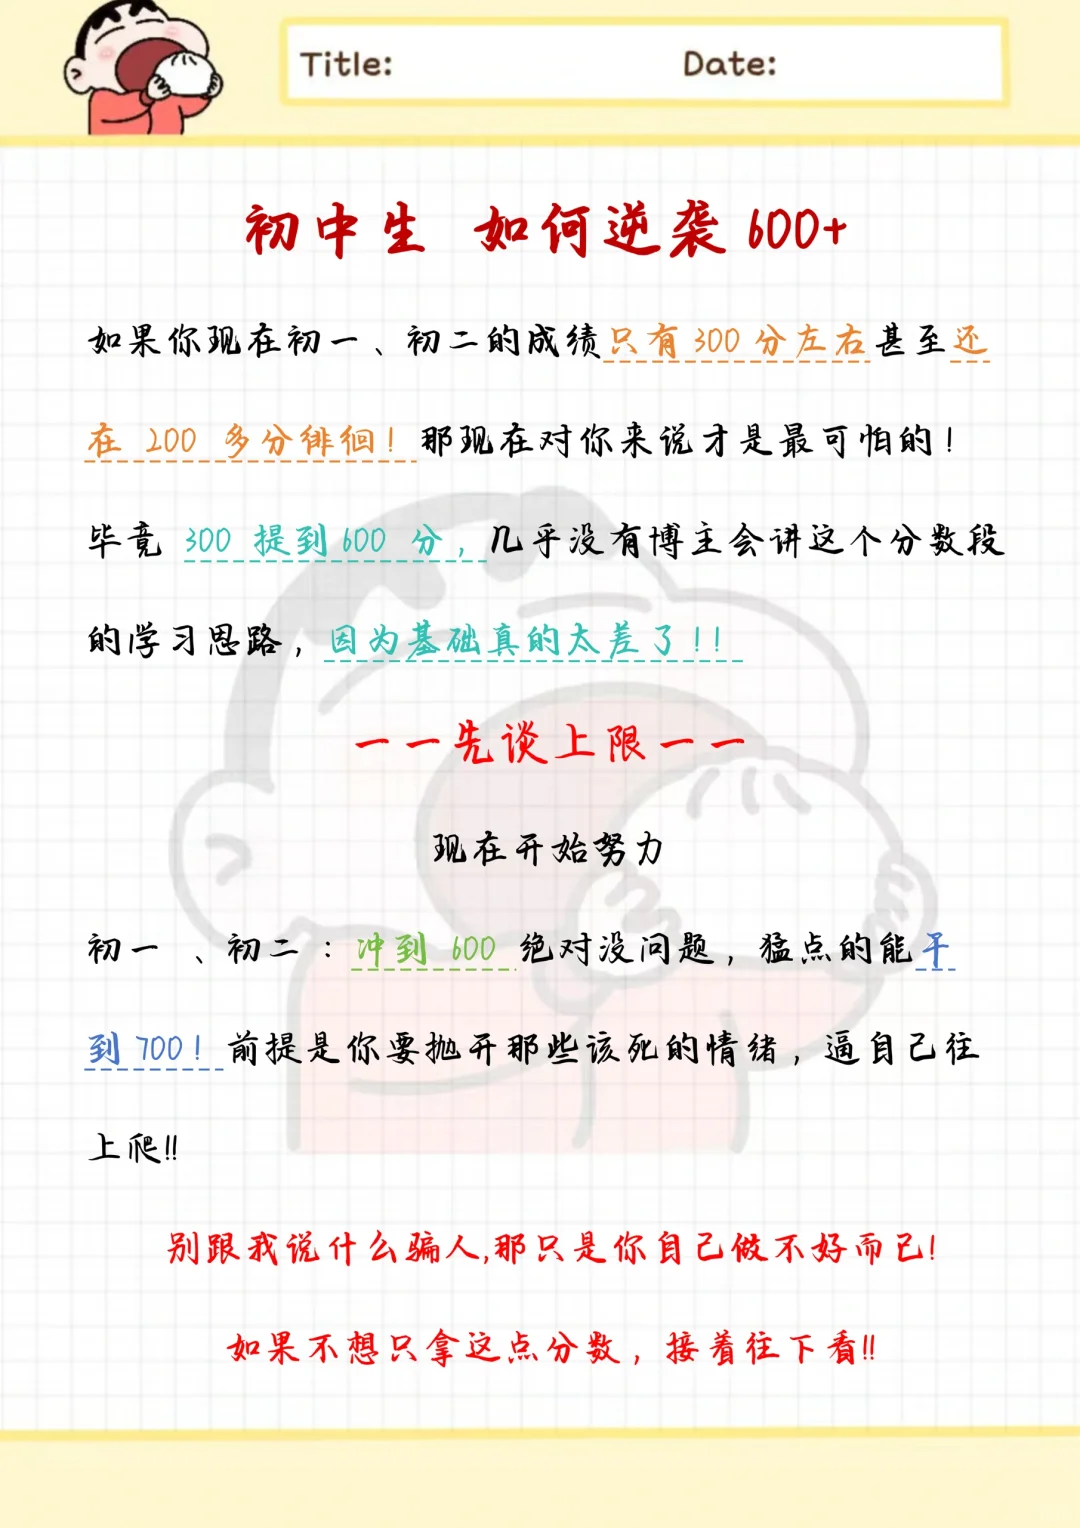 Title: Date:
初中生 如何逆袭600+
如果你现在初一、初二的成绩只有300分左右甚至还
在 200 多分徘徊！那现在对你来说才是最可怕的！
毕竟 300 提到600 分，几乎没有博主会讲这个分数段
的学习思路，因为基础真的太差了！！
一一先谈上限一一
现在开始努力
初一 、初二：冲到 600 绝对没问题，猛点的能干
到700！前提是你要抛开那些该死的情绪，逼自己往
上爬!!
别跟我说什么骗人,那只是你自己做不好而已!
如果不想只拿这点分数，接着往下看!!